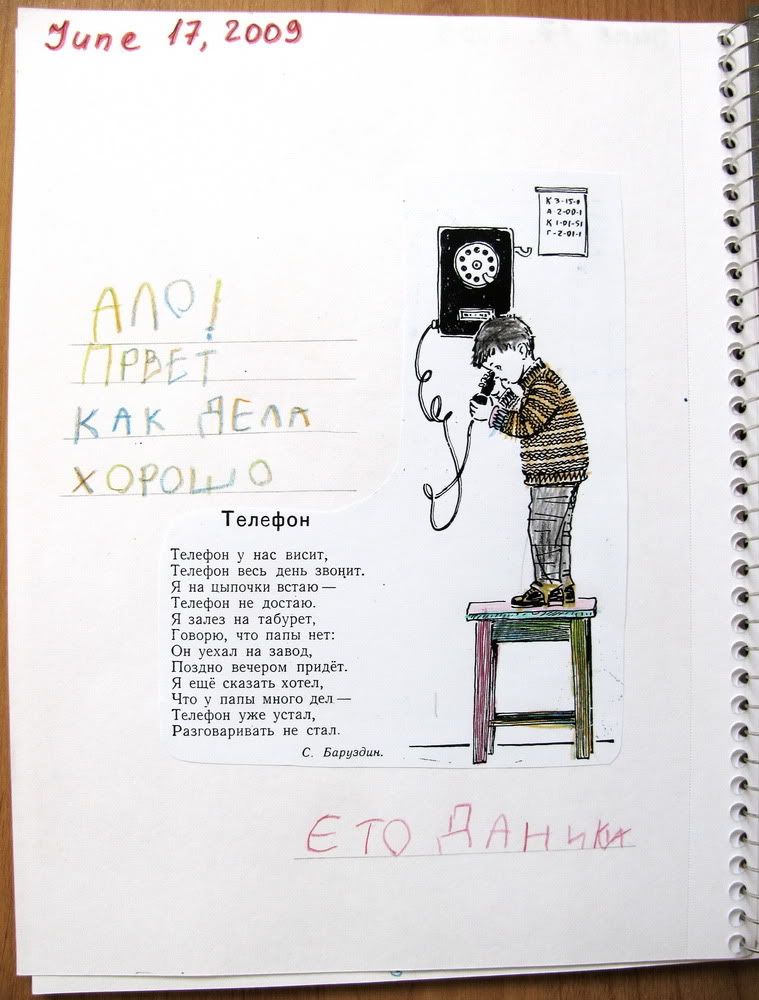 June 17, 2009
К 3-15-0
А 2-00-1
К 1-01-51
Г-2-01-1
АЛО!
ПРВЕТ
КАК ДЕЛА
ХОРОШО
Телефон
Телефон у нас висит,
Телефон весь день звонит.
Я на цыпочки встаю —
Телефон не достаю.
Я залез на табурет,
Говорю, что папы нет:
Он уехал на завод,
Поздно вечером придёт.
Я ещё сказать хотел,
Что у папы много дел —
Телефон уже устал,
Разговаривать не стал.
С. Баруздин.
ЕТО ДАНИКА